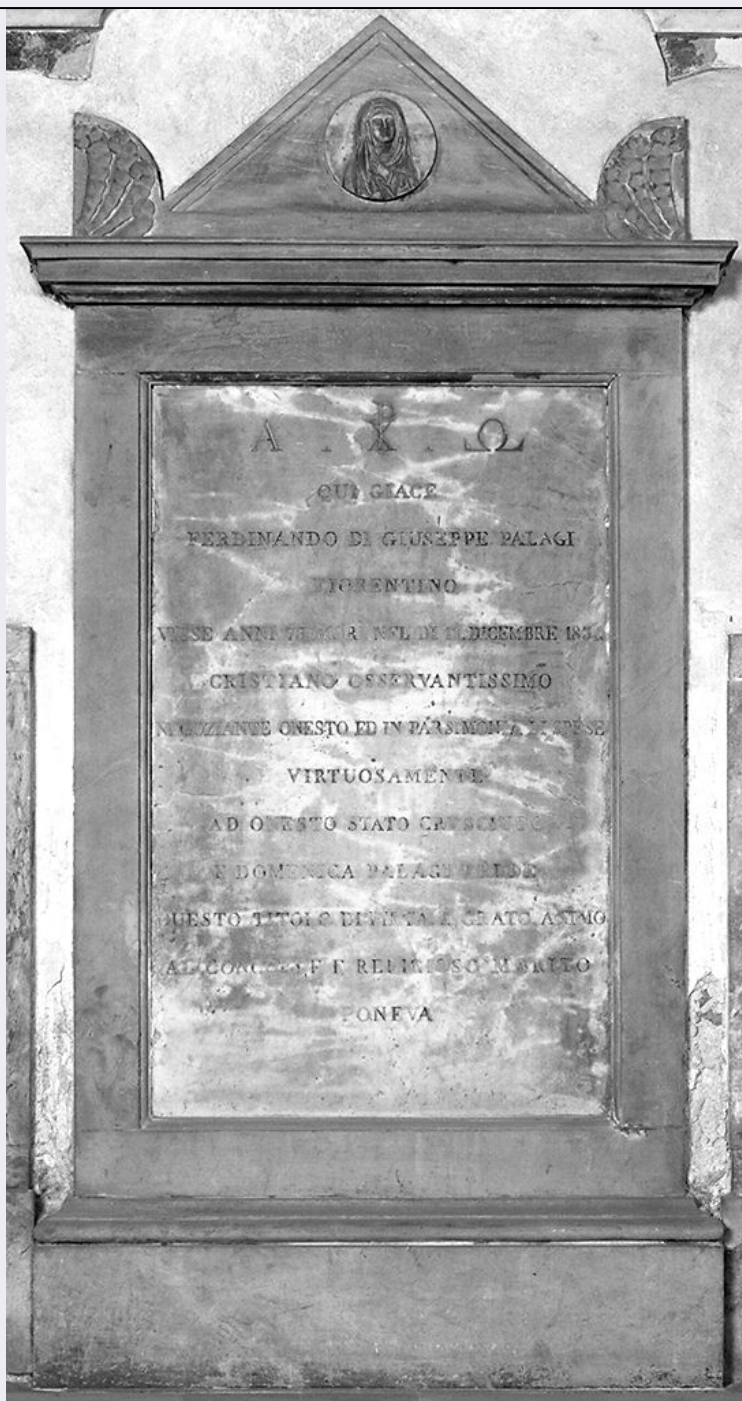 Α . ☧ . Ω
QUI GIACE
FERDINANDO DI GIUSEPPE PALAGI
FIORENTINO
VISSE ANNI MORI NEL DI DICEMBRE
CRISTIANO OSSERVANTISSIMO
NEGOZIANTE ONESTO ED IN PARSIMONIA DI SPESE
VIRTUOSAMENTE
AD ONESTO STATO CRESCIUTO
E DOMENICA PALAGI
QUESTO TITOLO DI E GRATO ANIMO
AL E RELIGIOSO MARITO
PONEVA